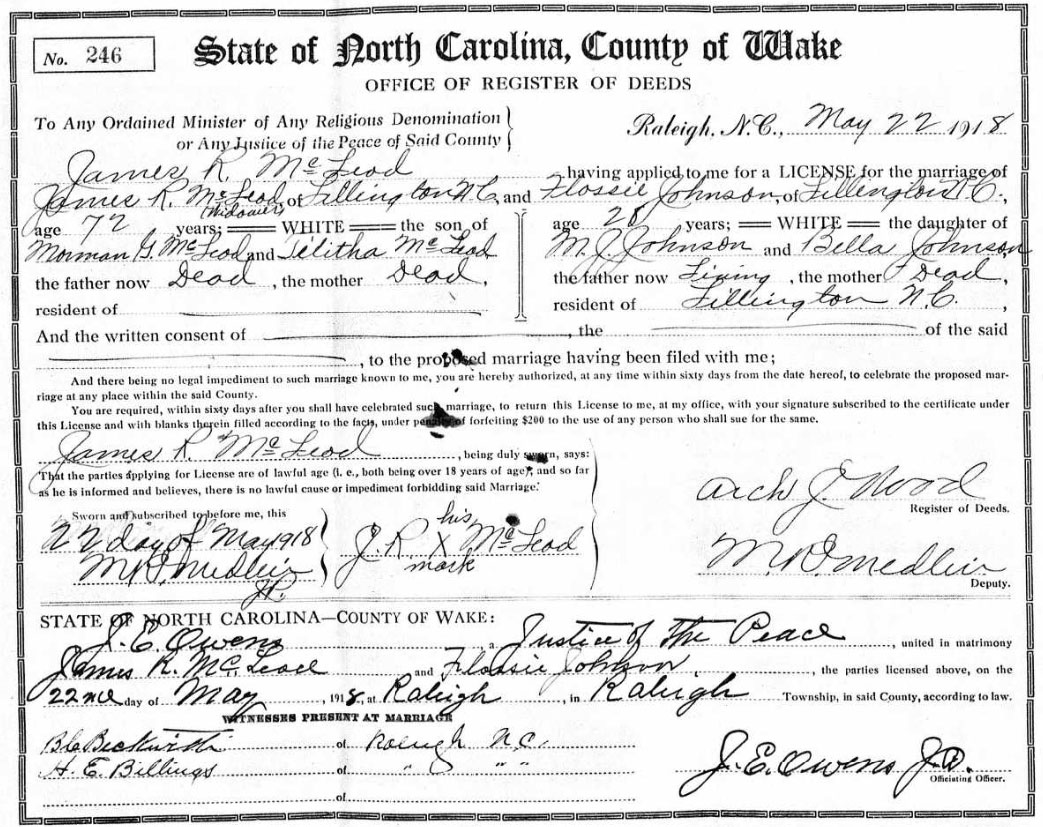 No. 246
State of North Carolina, County of Wake
OFFICE OF REGISTER OF DEEDS
To Any Ordained Minister of Any Religious Denomination
or Any Justice of the Peace of Said County
Raleigh, N.C., May 22 1918
James R. McLeod having applied to me for a LICENSE for the marriage of
James R. McLeod, of Lillington N.C. and Flossie Johnson, of Lillington N.C.,
(Widower)
age 72 years; WHITE the son of
age 28 years; WHITE the daughter of
Norman G. McLeod and Telitha McLeod
M. J. Johnson and Bella Johnson
the father now Dead, the mother Dead,
the father now Living, the mother Dead,
resident of
resident of Lillington N.C.
And the written consent of , the of the said
, to the proposed marriage having been filed with me;
And there being no legal impediment to such marriage known to me, you are hereby authorized, at any time within sixty days from the date hereof, to celebrate the proposed mar-
riage at any place within the said County.
You are required, within sixty days after you shall have celebrated such marriage, to return this License to me, at my office, with your signature subscribed to the certificate under
this License and with blanks therein filled according to the facts, under penalty of forfeiting $200 to the use of any person who shall sue for the same.
James R. McLeod, being duly sworn, says:
That the parties applying for License are of lawful age (i. e., both being over 18 years of age), and so far
as he is informed and believes, there is no lawful cause or impediment forbidding said Marriage.
Sworn and subscribed to before me, this
22 day of May 1918
Jr.
his
J. R. X McLeod
mark
Arch J. Wood
Register of Deeds.
Medlin
Deputy.
STATE OF NORTH CAROLINA—COUNTY OF WAKE:
J. E. Owens, a Justice of the Peace, united in matrimony
James R. McLeod and Flossie Johnson, the parties licensed above, on the
22nd day of May, 1918, at Raleigh, in Raleigh Township, in said County, according to law.
WITNESSES PRESENT AT MARRIAGE
Beckwith of Raleigh N.C.
H. E. Billings of " " "
of
J. E. Owens J.P.
Officiating Officer.